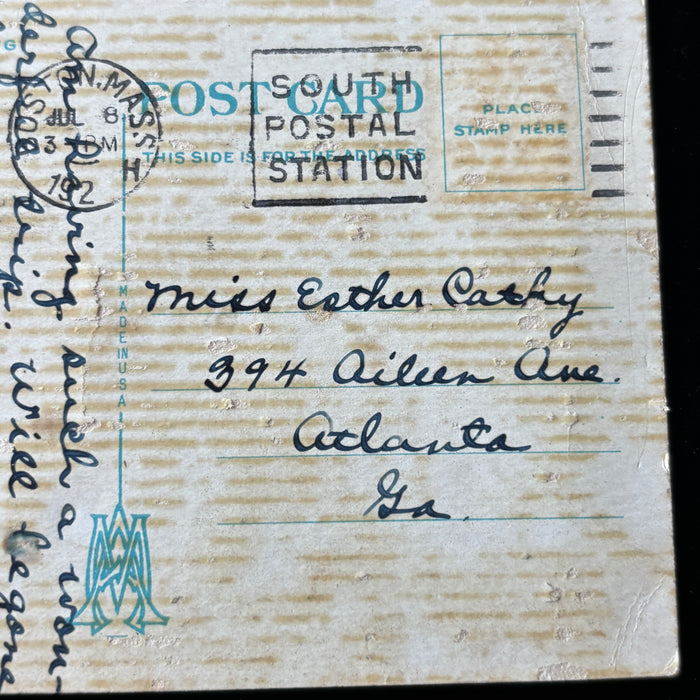 TON. MASS.
JUL 8
3 PM
192
SOUTH
POSTAL
STATION
POST CARD
THIS SIDE IS FOR THE ADDRESS
PLACE
STAMP HERE
MADE IN USA
Miss Esther Cathy
394 Aileen Ave.
Atlanta
Ga.
Am having such a won-
derful trip. Will be gone